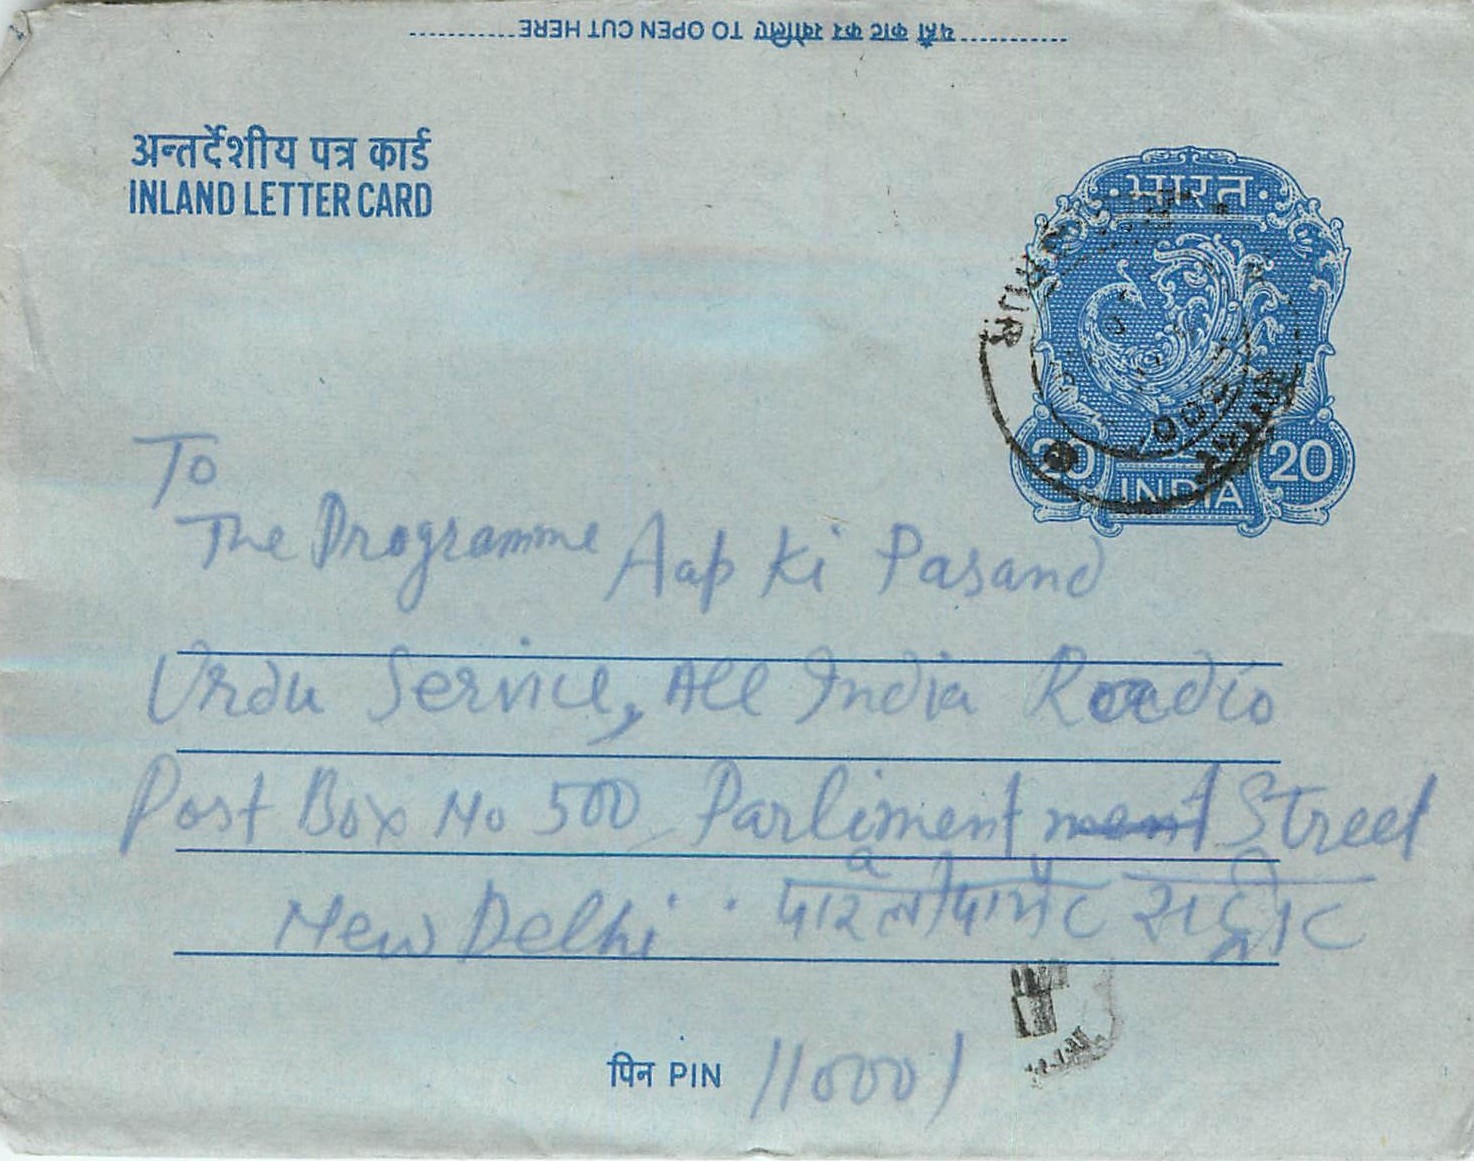 यहाँ काट कर खोलिए TO OPEN CUT HERE
अन्तर्देशीय पत्र कार्ड
INLAND LETTER CARD
भारत
20 20
INDIA
To
The Programme Aap Ki Pasand
Urdu Service, All India Radio
Post Box No 500 Parliment Street
New Delhi. पारलीयामेंट स्ट्रीट
पिन PIN 110001